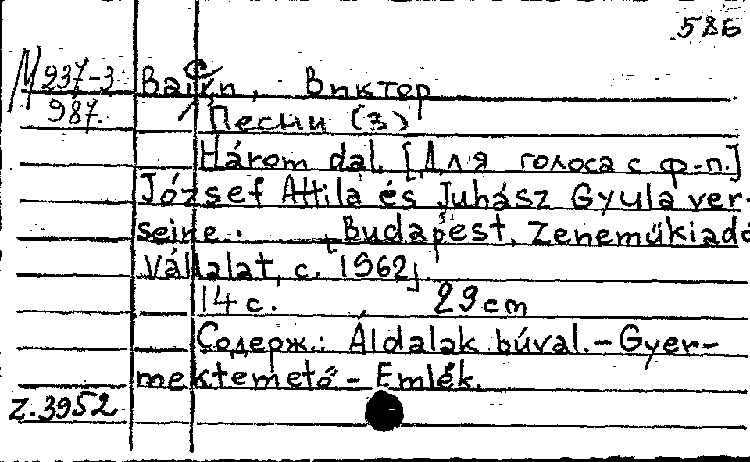 58Б
М 937-3 Ваш, Виктор
987. Песни (3)
Három dal. [Для голоса с ф-п.]
József Attila és Juhász Gyula ver-
seire. [Budapest, Zeneműkiadó
Vállalat, c. 1962]
14 с. 29 cm
Содерж.: Áldalak búval. - Gyer-
mektemető - Emlék.
Z.3952